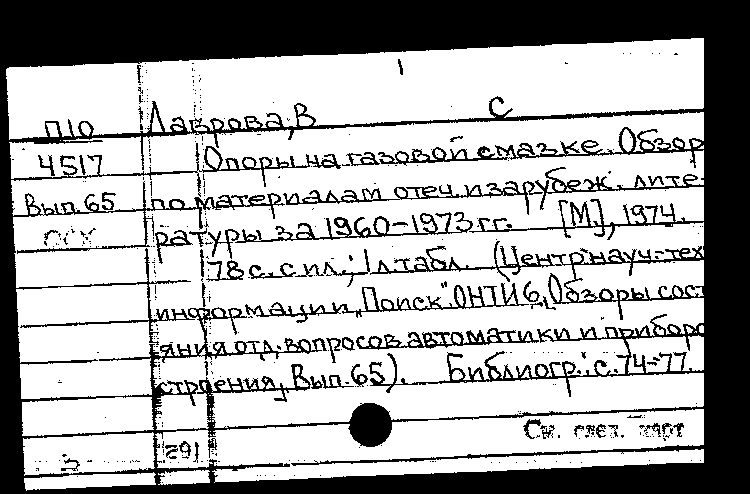 П10 Лаврова, В С
4517 Опоры на газовой смазке. Обзор
Вып. 65 по материалам отеч. и зарубеж. лите-
ратуры за 1960-1973 гг. [М], 1974.
78 с. с ил.; 1 л. табл. (Центр науч.-тех
информации "Поиск" ОНТИ 6, Обзоры сост
яния отд. вопросов автоматики и приборо
строения, Вып. 65). Библиогр.: с. 74-77.
См. след. карт
291